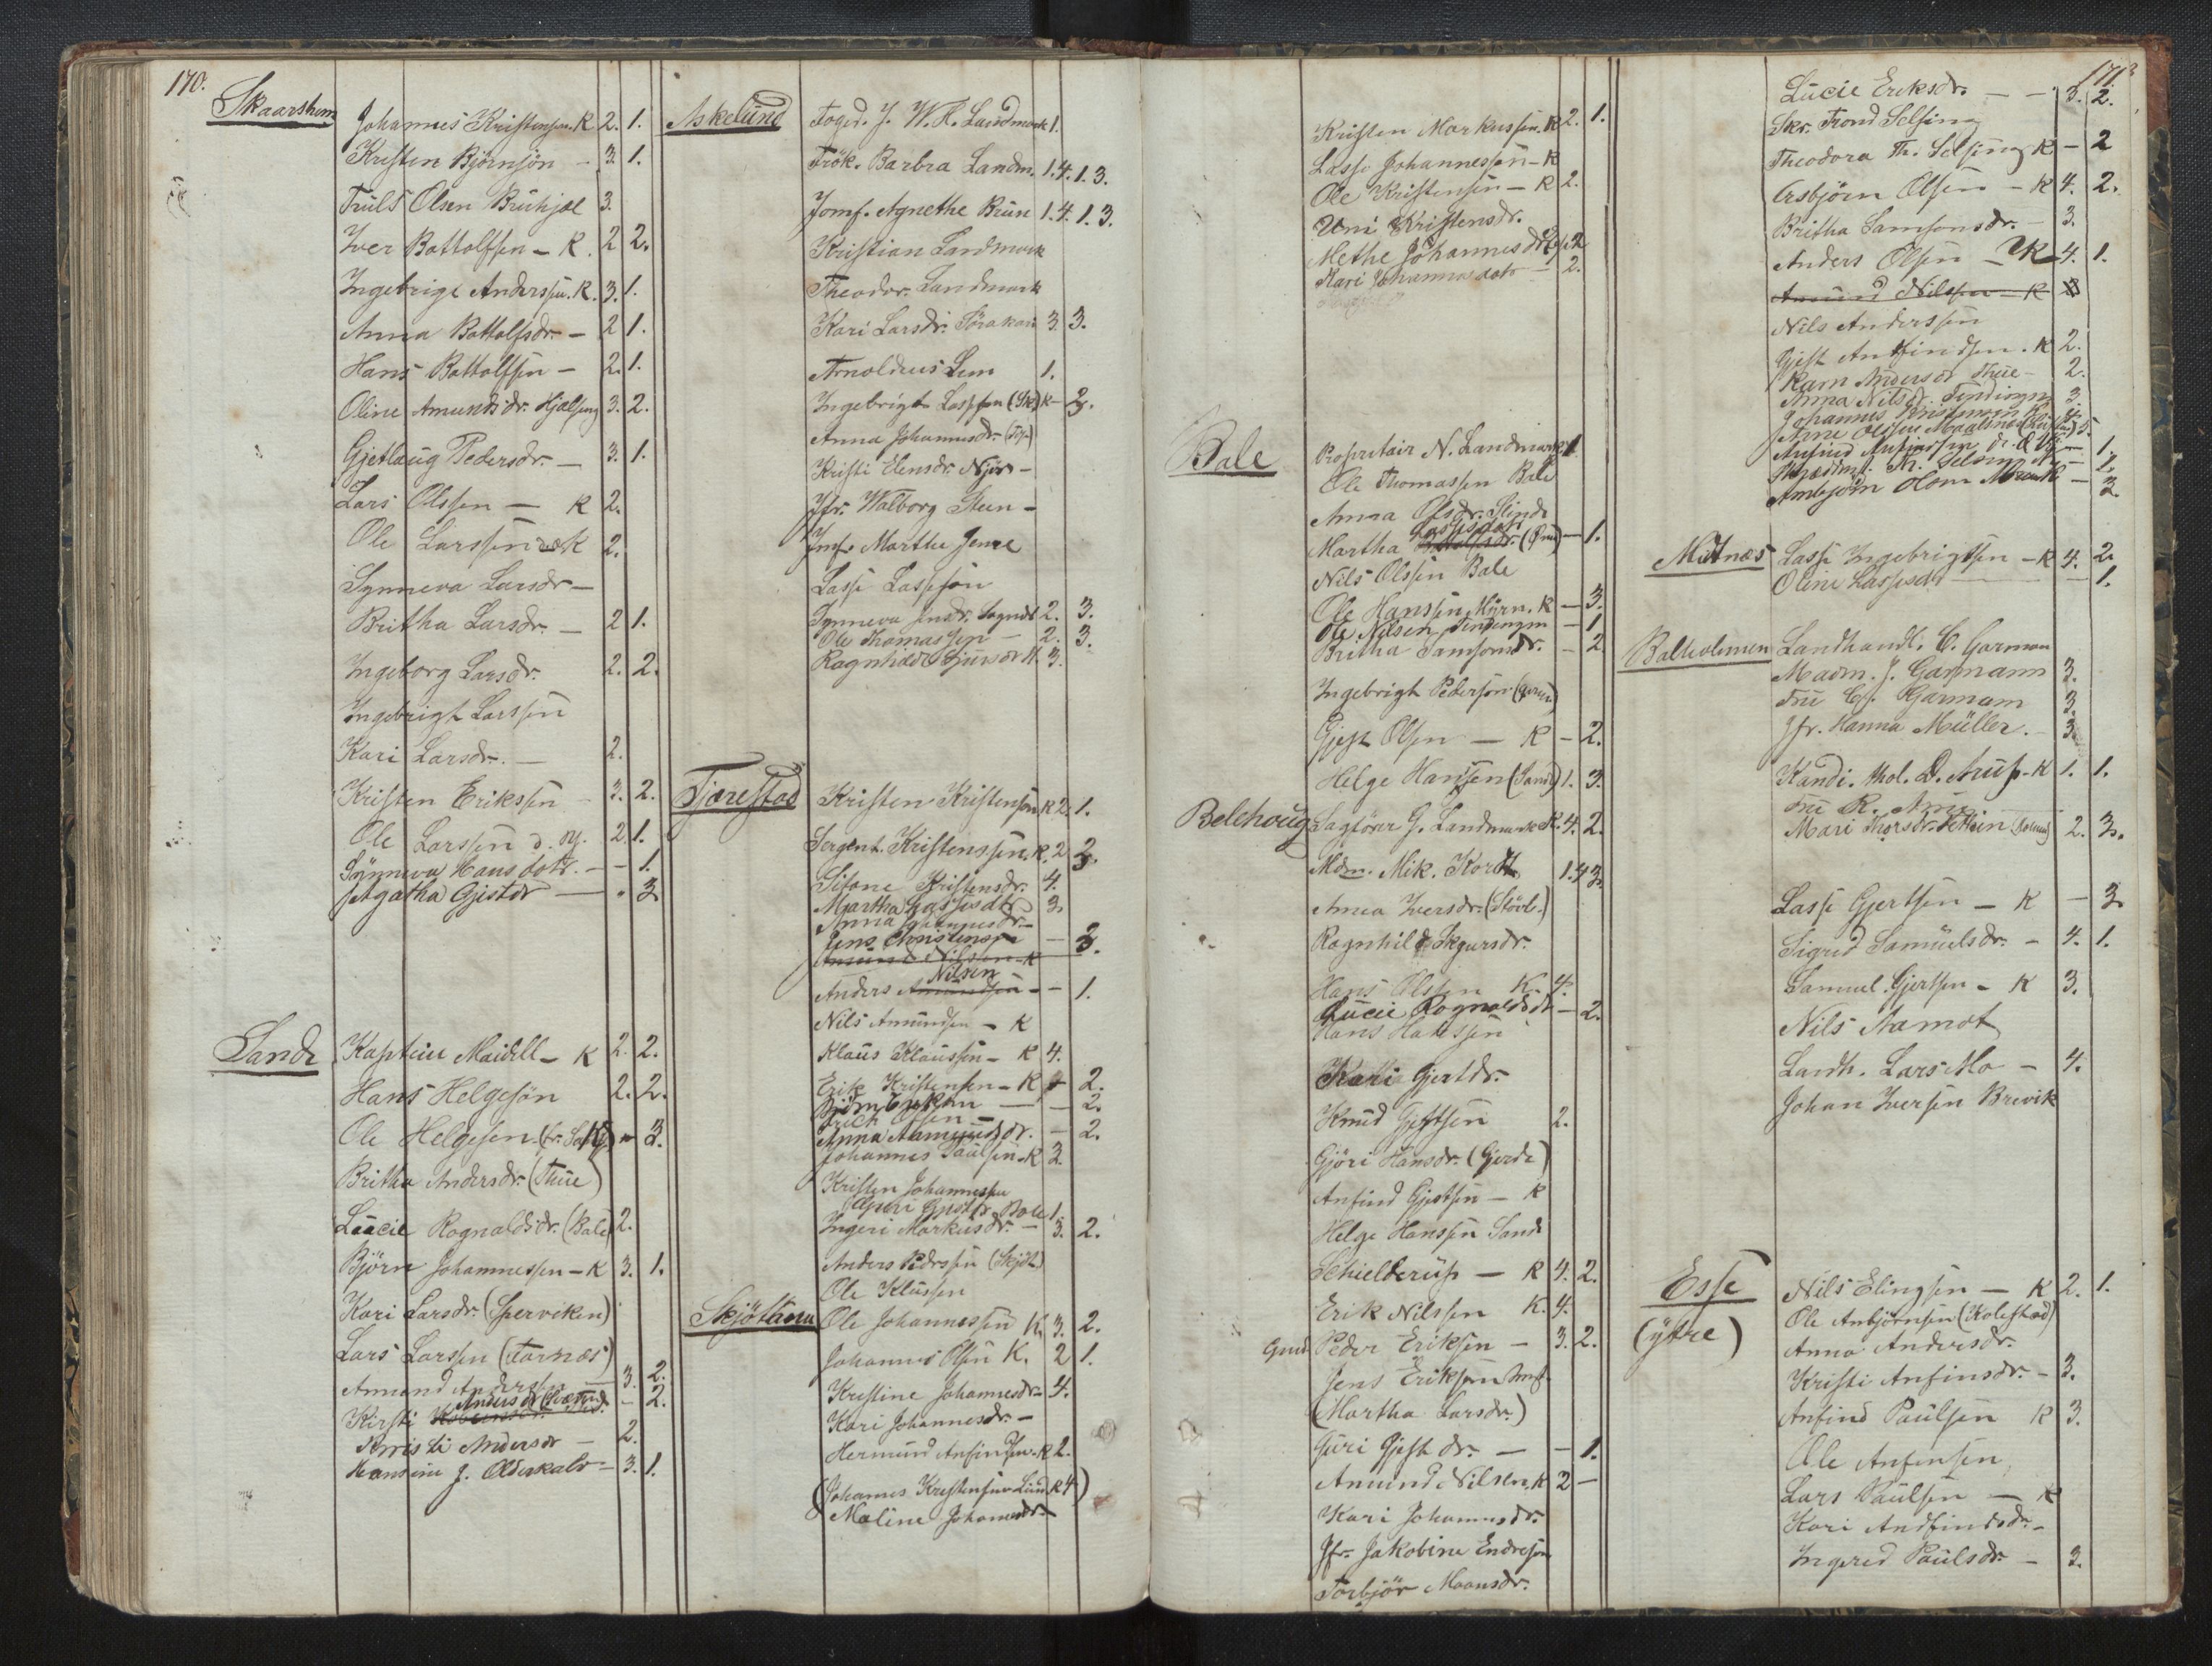 170.
Skaarshem
Johannes Kristensen. K 2. 1.
Kristen Björnsön - 3. 1.
Truls Olsen Bruhjæl 3.
Iver Bottolfsen - K. 2 2.
Ingebrigt Anderssen. K. 3. 1.
Anna Bottolfsdr. - 2 1.
Hans Bottolfsen - 2. 1.
Oline Amundsdr. 3. 2.
Gjetlaug Pedersdr. - 3. 1.
Lars Olssen - K 2.
Ole Larssen K 2.
Synneva Larsdr -
Britha Larsdr. - 2 1.
Ingeborg Larsdr. 2. 2.
Ingebrigt Larssen
Kari Larsdr. - 2.
Kristen Erikssen - 3. 2.
Ole Larssen d. y. 2. 1.
Synneva Hansdotr. - - 1.
Agatha Gjestdr - 3
Sande
Kaptein Maidell - K 2. 2.
Hans Helgesön 2. 2.
Ole Helgesen 3.
Britha Andersdr. (Thue)
Lucie Rognaldsdr. (Bale) 2.
Björn Johannessen - K 3. 1.
Kari Larsdr. (Sperviken)
Lars Larssen (Tarnæs)
Amund Anderssen 3. 2.
Kirsti Andersdr - 2.
Kristi Andersdr - 2.
Hansine J. Olderskalv - 3. 1.
Askelund
Foged. J. W. K. Landmark 1.
Frök. Barbra Landm. 1. 4. 1. 3.
Jomf. Agnethe Brun 1. 4. 1. 3.
Kristian Landmark
Theodor. Landmark
Kari Larsdr. 3. 3.
Arnoldus Lem 1.
Ingebrigt Lassesen (Sk) K - 3.
Anna Johannesdr.
Kristi Elensdr. Njös -
Jfr. Walborg Steen -
Jmf. Marthe Jenre
Lasse Lassesön
Synneva Jensdr. Sogndal 2. 3.
Ole Thomassen - 2. 3.
Ragnhild Sjursdr 3.
Tjærestad
Kristen Kristensen K 2. 1.
Sergent. Kristenssen. K. 2 3.
Sifone Kristensdr. 4.
Martha Lassesdtr 3.
Anna Hannesdr. -
Jens Christensen - 3.
Amund Nilssen - K
Nilsen
Anders Amundsen - - 1.
Nils Amundsen - K
Klaus Klaussen - K 4.
Erik Kristensen - K 2.
Björn Eriksen - - 2.
Erich Olsen -
Anna Aamundsdr. - 2.
Johannes Paulsen - K 3.
Kristen Johannessen
Gjøri Gjestdr. Bale 1.
Ingeri Markusdr. - 3. 2.
Anders Pedrssen (Skjöt.)
Ole Klussen
Skjötann
Ole Johannessen K. 3. 2.
Johannes Olsen K. 2 1.
Kristine Johannesdr. 4.
Kari Johannesdr. -
Hermund Anfindsen. K 2.
(Johannes Kristensen Lund K 4)
Maline Johannesdr. -
Kristen Markussen. K 2. 1.
Lasse Johannessen - K
Ole Kristensen - K 2.
Uni Kristensdr.
Methe Johannesdr. 2
Kari Johannesdotr - 2.
Bale
Proprietair N. Landmark 1
Ole Thomassen Bale
Anna Olsdr. Slinde
Lassesdotr
Martha - 1.
Nils Olssen Bale
Ole Hanssen Myrn. K - 3.
Ole Nilsen Tendengen - 1
Britha Samsonsdr. - 2
Ingebrigt Pedersen
Gjest Olsen - K - 2.
Helge Hansen (Sande) 1. 3.
Belehoug
Sagförer G. Landmark K. 4. 2.
Mdm. Mik. Kordt 1. 4 3.
Anna Iversdr. (Stövl.)
Ragnhild Skjursdr.
Hans Olssen K. 4.
Lucie Rognaldsdt - 2.
Hans Hanssen
Kari Gjertdr.
Knud Gjestsen 2.
Gjöri Hansdr. (Gjerde)
Anfind Gjestsen - K
Helge Hanssen Sande
Schielderup - K 4. 2.
Erik Nilssen K. 4.
Peder Eriksen - 3. 2.
Jens Eriksen
(Martha Larsdr.)
Guri Gjestdr. - - 1.
Amund Nilsen. K 2 -
Kari Johannesdr.
Jfr. Jakobine Endresen
Torbjör Moonsdr.
171
Lucie Eriksdr. - - 3. 2.
Skr. Trond Selsing
Theodora Th. Selsing K - 2
Asbjörn Olsen - K 4. 2.
Britha Samsonsdr. - 3.
Anders Olsen - K 4. 1.
Amund Nilssen - K
Nils Anderssen
Gjest Antfindsen. K 2.
Karn Andersdr Thue - 2.
Anna Nilsdr. Tendingen 3
Johannes Kristensen
Arne Olssen
Anfind Anfindssen
Ambjörn Olsen - 3
Mutnæs
Lasse Ingebrigtsen - K 4. 2.
Oline Lassesdr - - 1.
Balholmen
Landhandl. C. Garman
Madm. J. Garmann 3.
Fru C. Garmann 3.
Jfr. Hanna Müller. - 3.
Kandi. thol. D. Arup - K 1. 1.
Fru R. Arup
Mari Thorsdr. 2. 3.
Lasse Gjertsen - K - 3.
Sigrid Samuelsdr. - 4. 1.
Samuel. Gjertsen - K 3.
Nils Aamot
Landh. Lars Mo - 4.
Johan Iversen Brevik
Esse
(ytre)
Nils Elingsen - K 2. 1.
Ole Anbjörnsen (Kolestad)
Anna Andersdr.
Kristi Anfinsdr. - 3.
Anfind Paulsen K 3.
Ole Anfinsen
Lars Paulsen - K
Kari Andfindsdr. -
Ingerid Paulsdr. - 3.